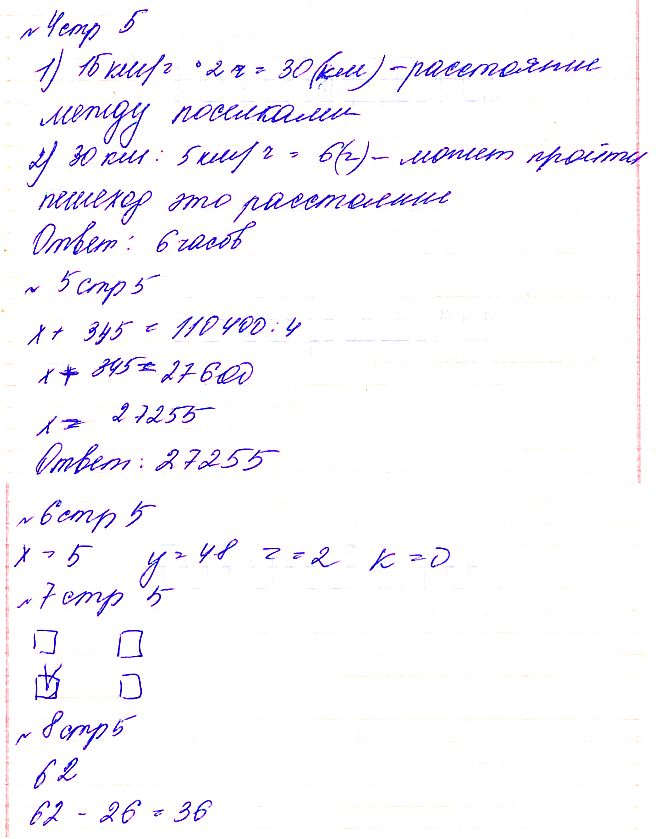 №4стр 5
1) 15 км/ч · 2 ч = 30 (км) - расстояние
между поселками
2) 30 км : 5 км/ч = 6 (ч) - может пройти
пешеход это расстояние
Ответ: 6 часов
№ 5 стр 5
x + 345 = 110400 : 4
x + 345 = 27600
x = 27255
Ответ: 27255
№6 стр 5
x = 5 y = 48 z = 2 k = 0
№7 стр 5
№8 стр 5
62
62 - 26 = 36